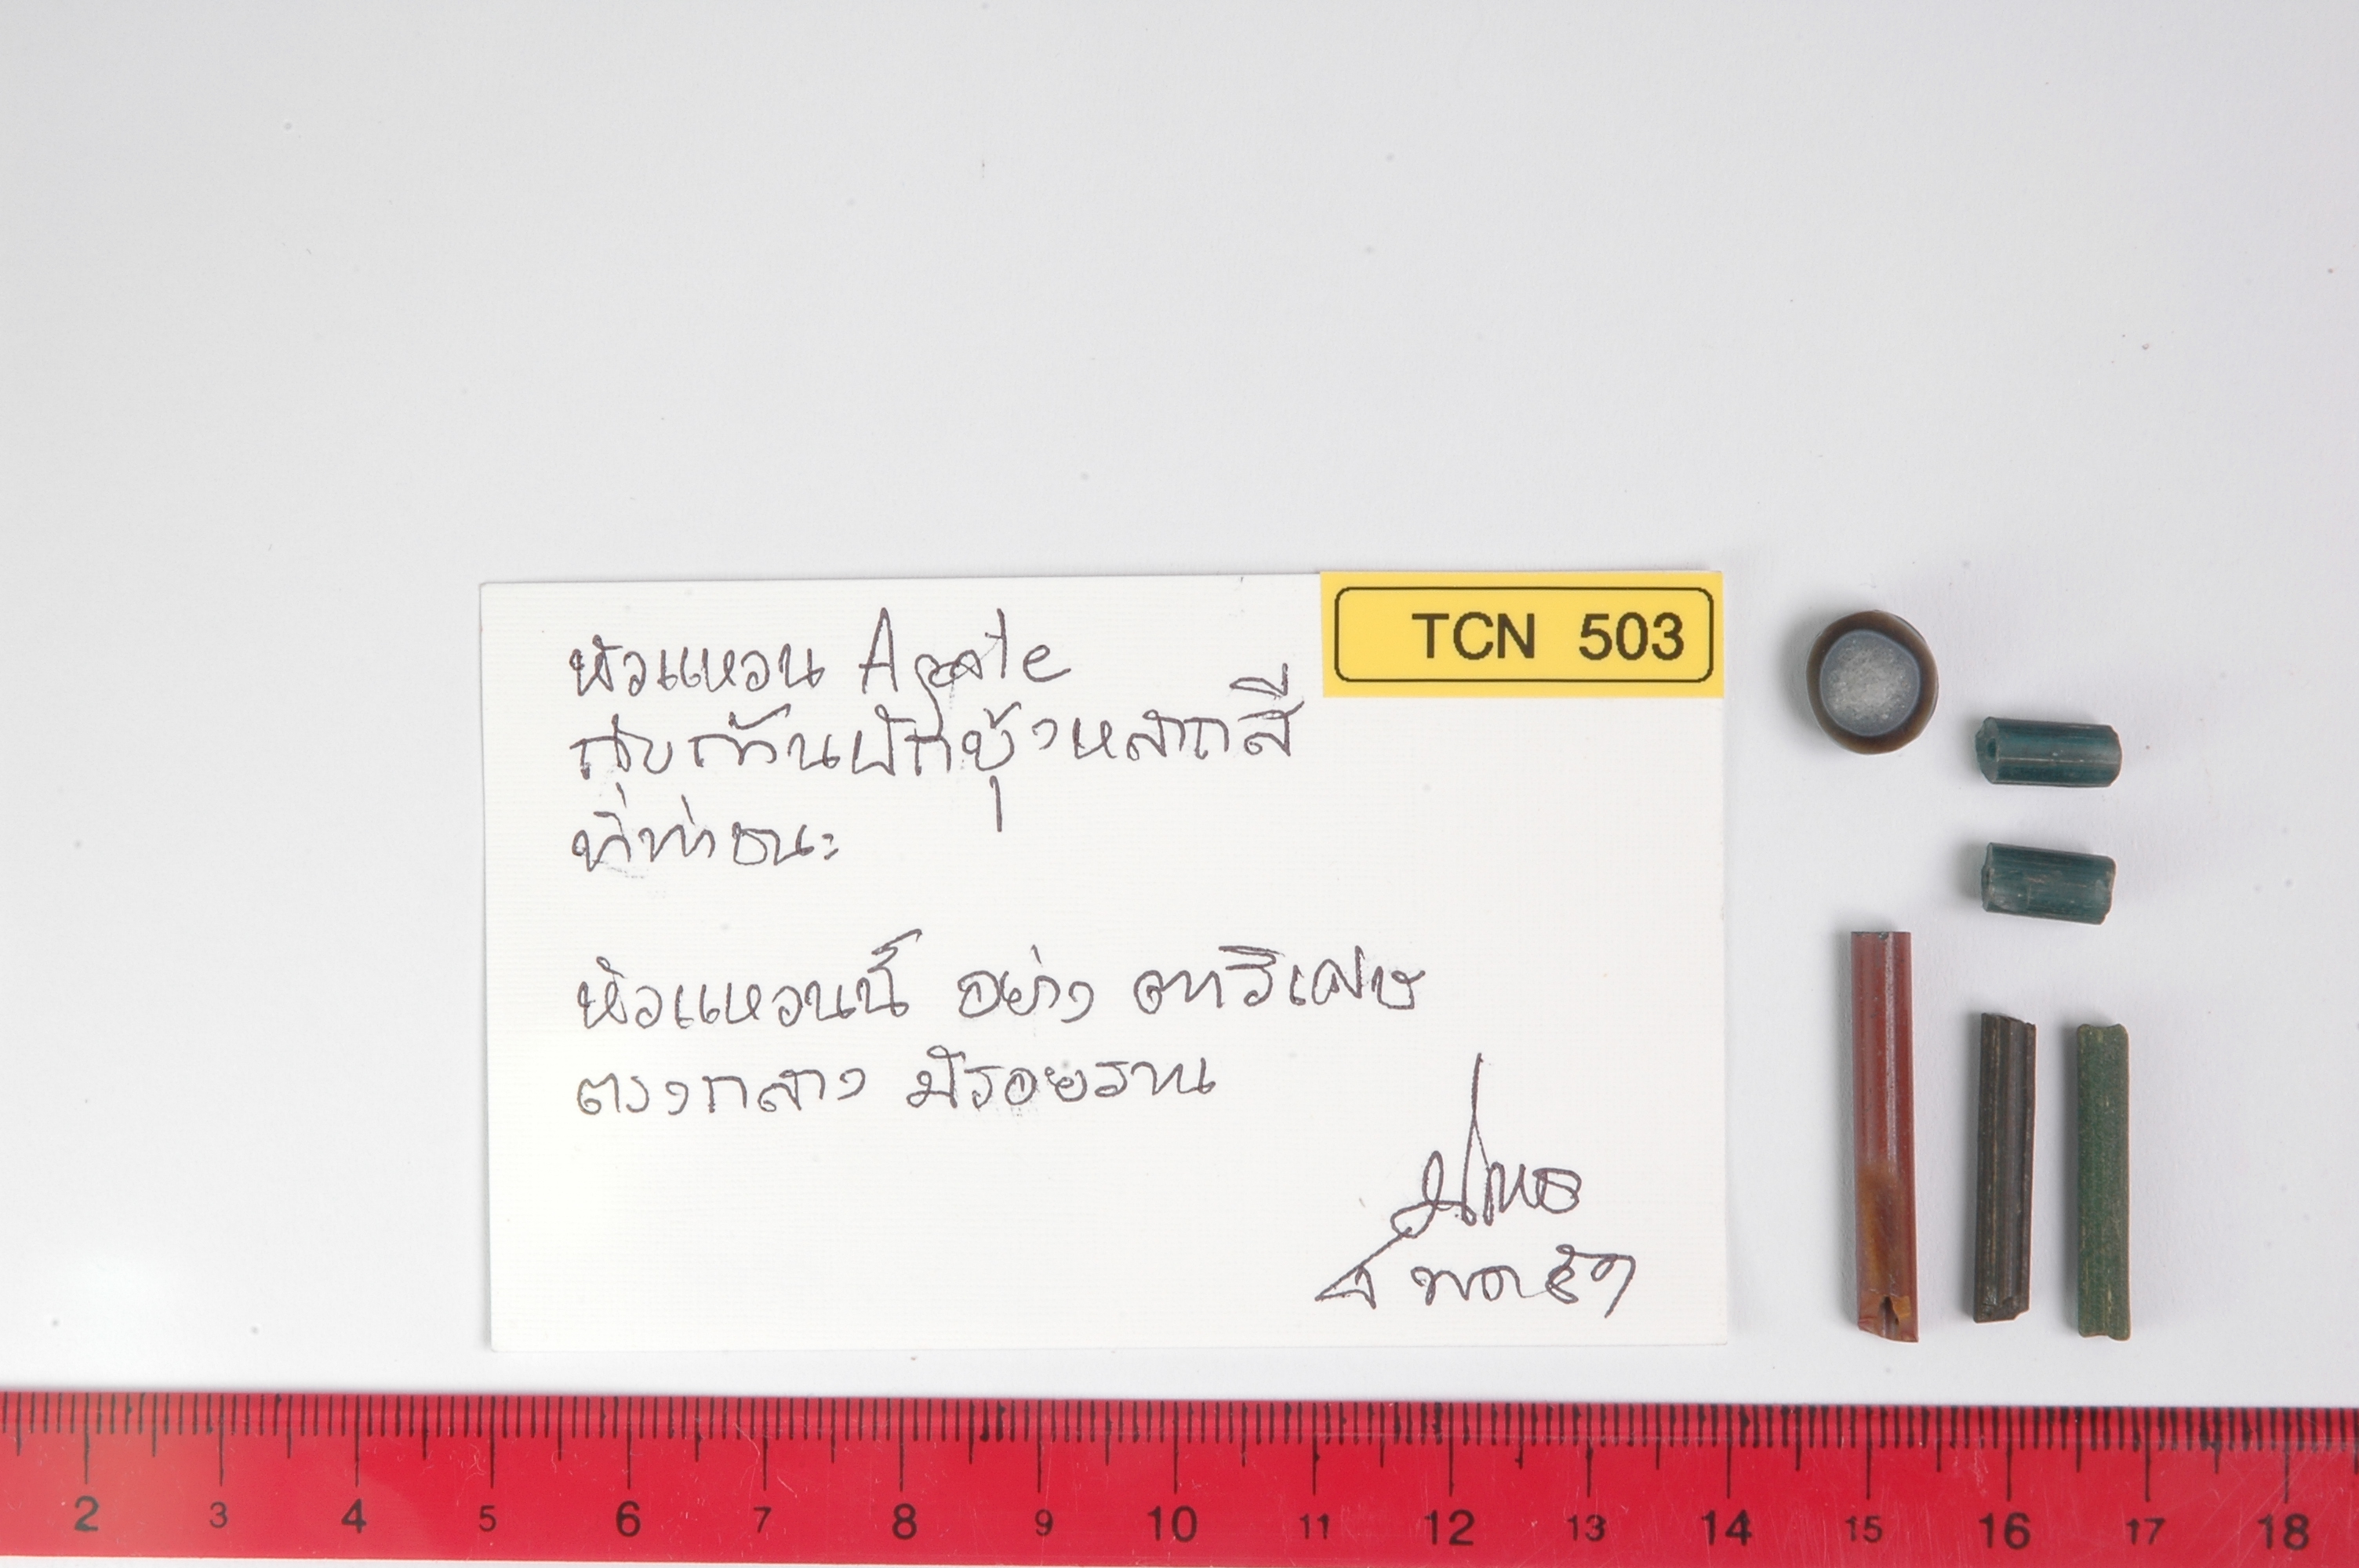 TCN 503
หัวแหวน Agate
กับก้านผักบุ้งหลากสี
ที่ท่าชนะ
หัวแหวนนี้ อย่าง ตาวิเศษ
ตรงกลาง มีรอยราน
2 3 4 5 6 7 8 9 10 11 12 13 14 15 16 17 18